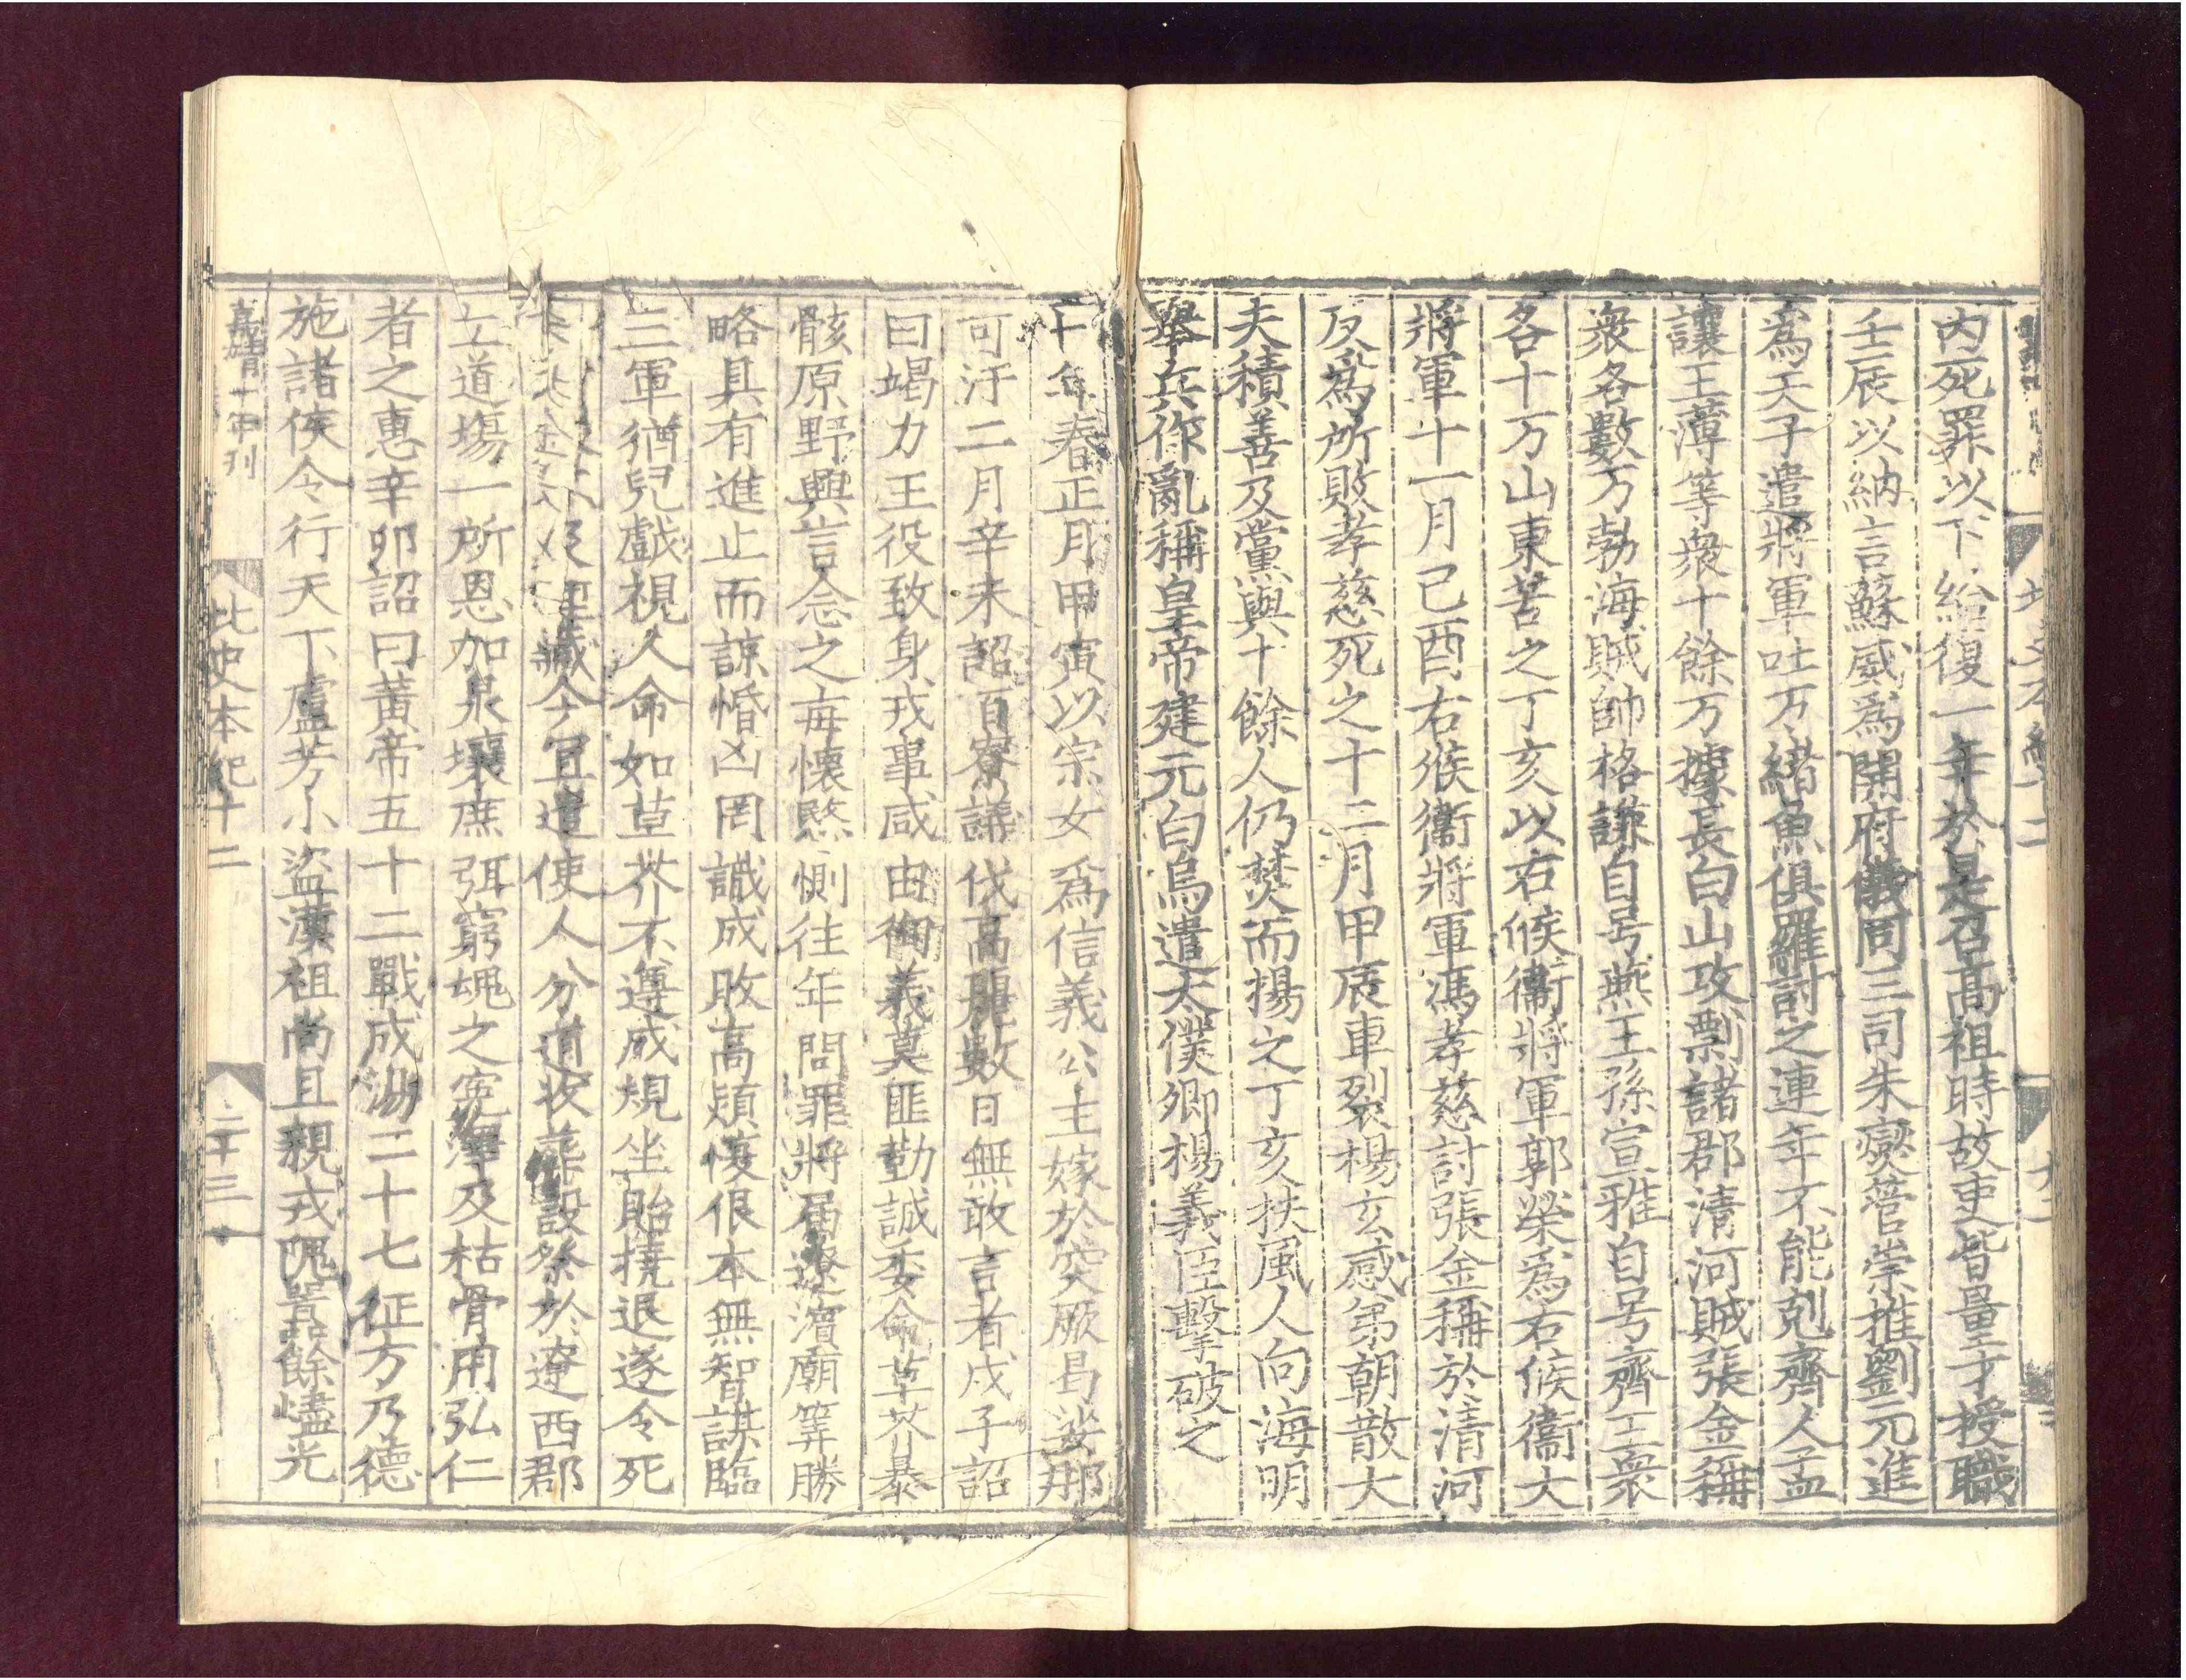 內死罪以下給復一年於是召高祖時故吏皆量才授職
壬辰以納言蘇威爲開府儀同三司朱燮管崇推劉元進
爲天子遣將軍吐万緒魚俱羅討之連年不能剋齊人孟
讓王薄等衆十餘万據長白山攻剽諸郡清河賊張金稱
衆各數万勃海賊帥格謙自号燕王孫宣雅自号齊王衆
各十万山東苦之丁亥以右候衞將軍郭榮爲右候衞大
將軍十一月己酉右候衞將軍馮孝慈討張金稱於清河
反爲所敗孝慈死之十二月甲辰車裂楊玄感弟朝散大
夫積善及黨與十餘人仍焚而揚之丁亥扶風人向海明
舉兵作亂稱皇帝建元白烏遣太僕卿楊義臣擊破之
十年春正月甲寅以宗女爲信義公主嫁於突厥曷娑那
可汗二月辛未詔百寮議伐高麗數日無敢言者戊子詔
曰竭力王役致身戎事咸由徇義莫匪勤誠委命草芥暴
骸原野興言念之每懷愍惻往年問罪將屆遼濱廟筭勝
略具有進止而諒惛凶罔識成敗高熲愎佷本無智謀臨
三軍猶兒戲視人命如草芥不遵成規坐貽撓退遂令死
埋藏今宜遣使人分道收葬設祭於遼西郡
立道塲一所恩加泉壤庶弭窮魂之寃澤及枯骨用弘仁
者之惠辛卯詔曰黃帝五十二戰成湯二十七征方乃德
施諸侯令行天下盧芳小盜漢祖尚且親戎隗囂餘燼光
嘉靖十年刊
北史本紀十二
二十三